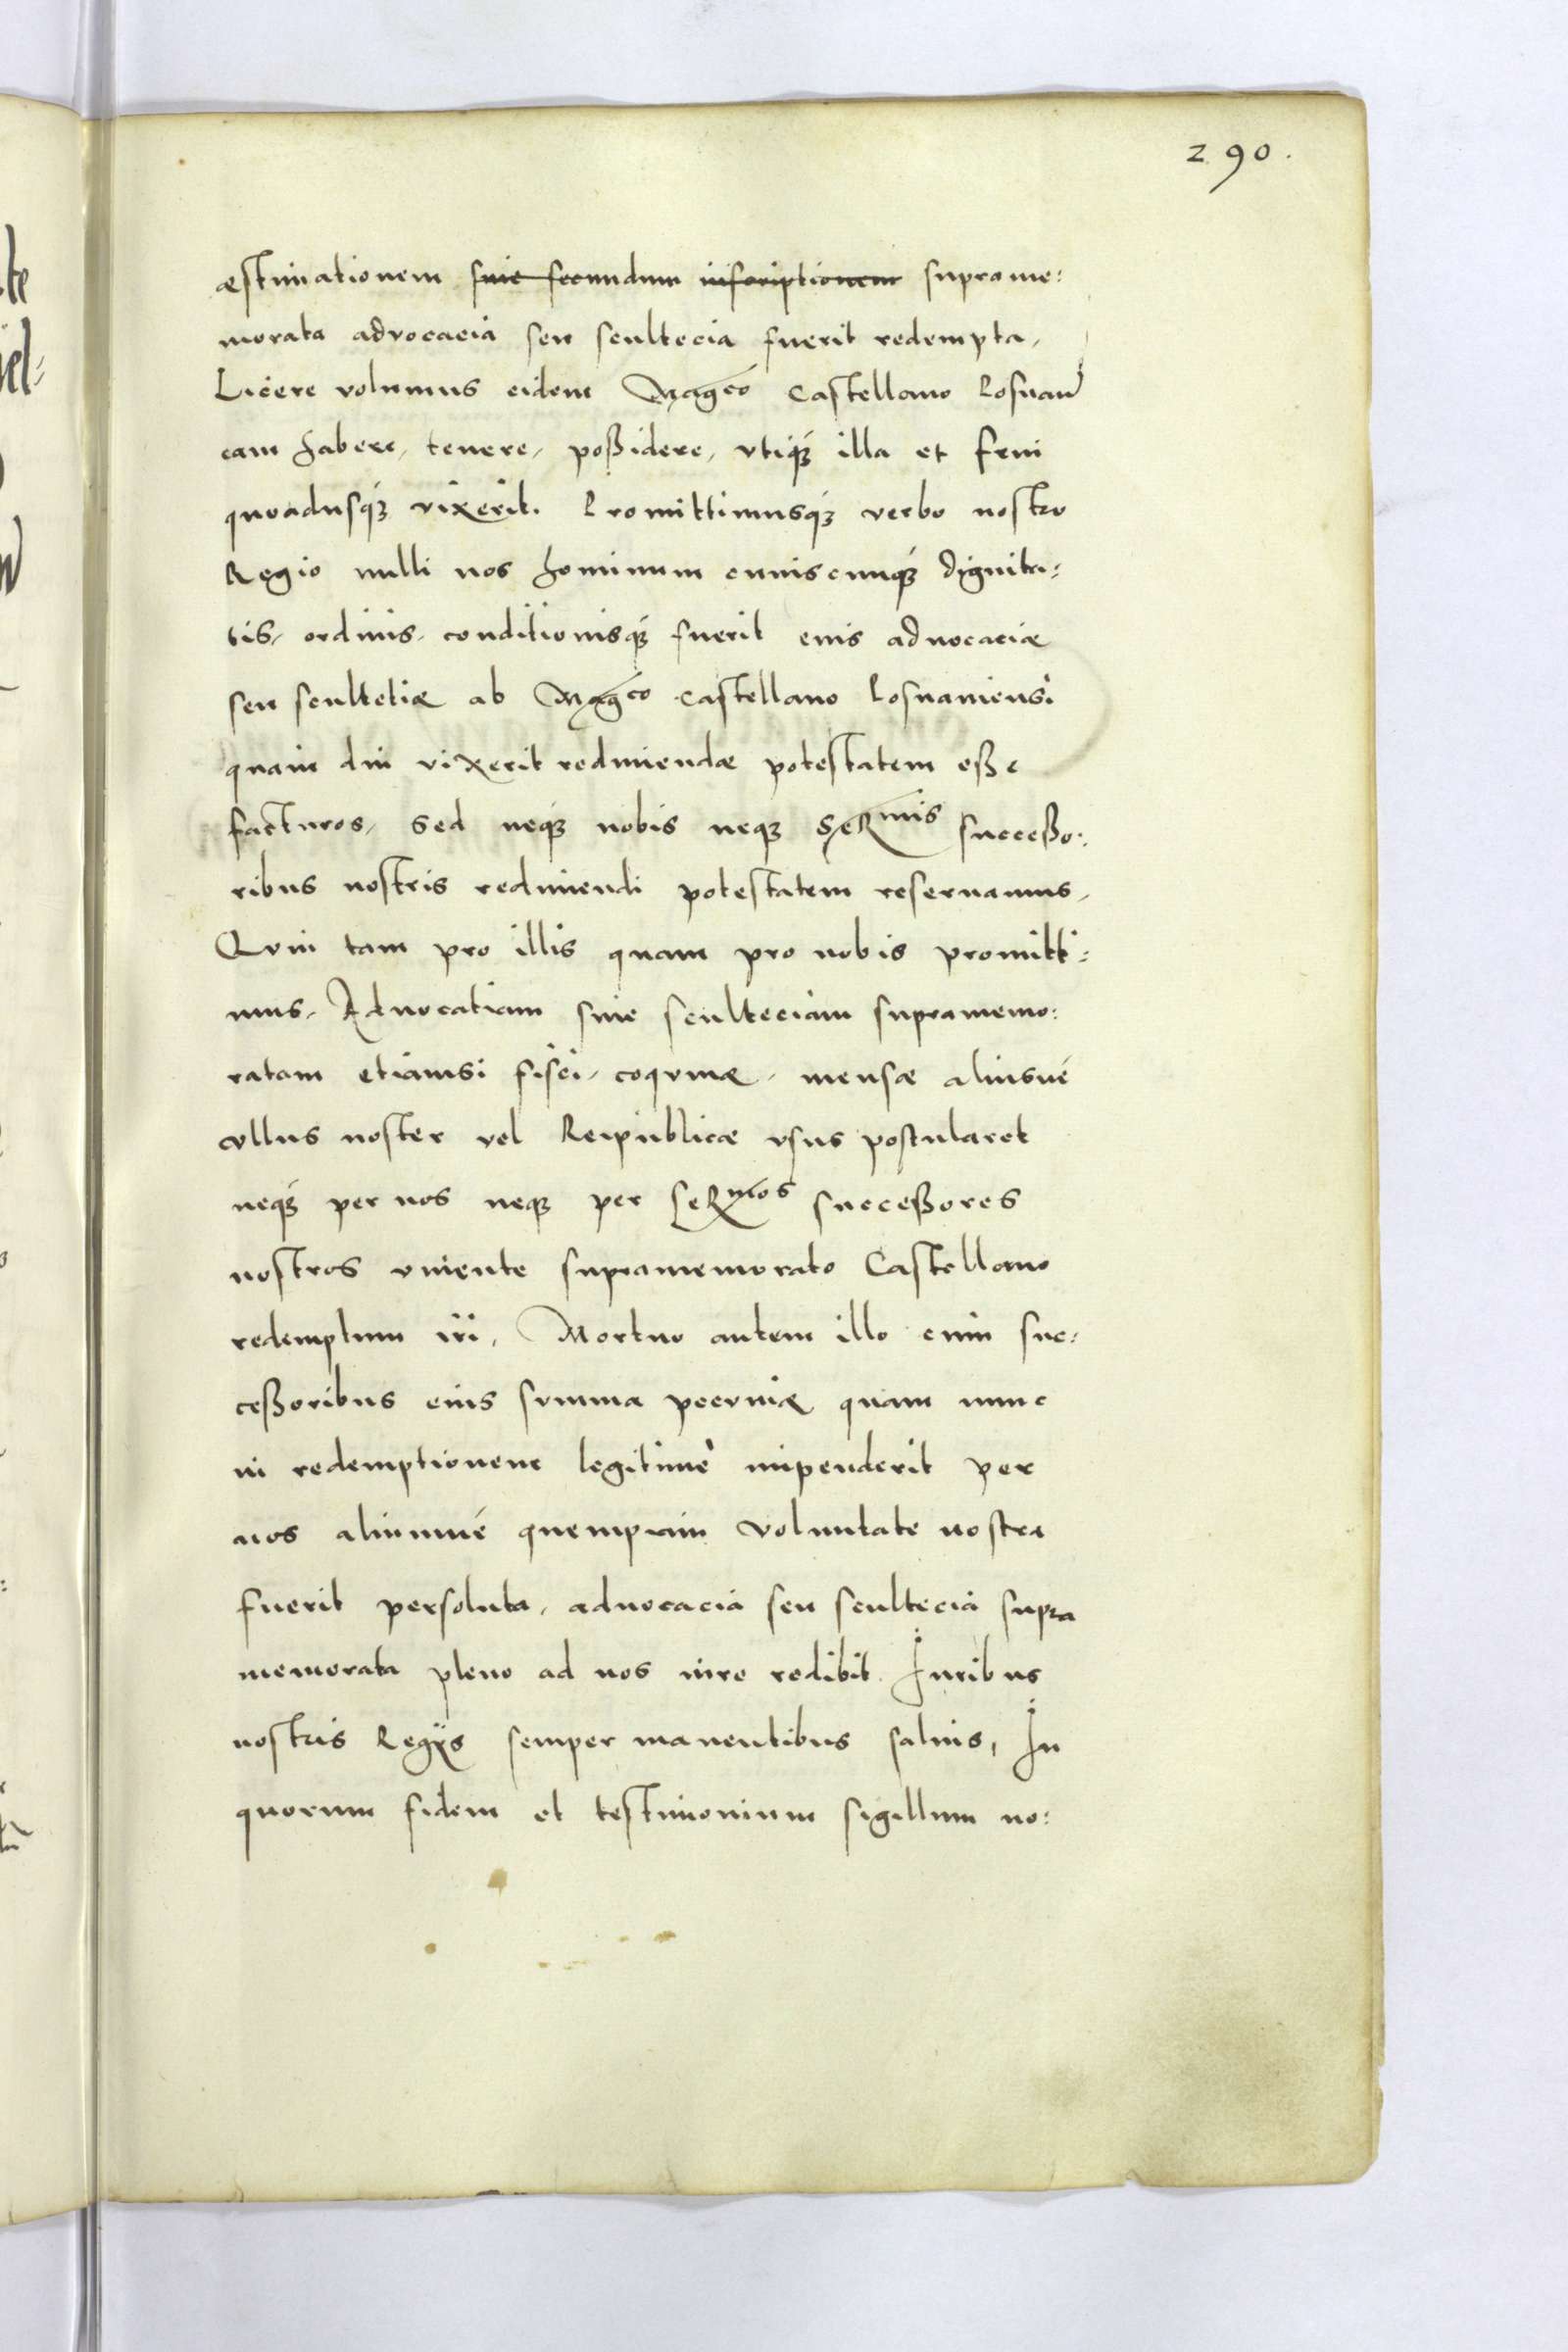 290.
æstimationem siue secundum inscriptionem suprame:
morata advocacia seu scultecia fuerit redempta,
Licere volumus eidem Mag^co Castellano Posnan
eam habere, tenere, poßidere, vtiq́ꝫ illa et frui
quoadusq́ꝫ vixerit. Promittimusq́ꝫ verbo nostro
Regio nulli nos hominum cuiuscunq́ꝫ dignita:
tis, ordinis, conditionisq́ꝫ fuerit euis aduocaciæ
seu scultetiæ ab Mag^co Castellano Posnaniensi
quam diu vixerit redimendæ potestatem eße
facturos, Sed neq́ꝫ nobis neqꝫ SeR^mis succeßo:
ribus nostris redimendi potestatem reseruamus,
Quin tam pro illis quam pro nobis promitti:
mus, Aduocatiam siue sculteciam supramemo:
ratam etiamsi fisci, coquinæ, mensæ aliusué
vllus noster vel Reipublicæ vsus postularet
neq́ꝫ per nos neqꝫ per SeR^mos succeßores
nostros viuente supramemorato Castellano
redemptum iri, Mortuo autem illo cum suc:
ceßoribus eius summa pecuniæ quam nunc
in redemptionem legitimè impenderit per
nos aliumué quempiam voluntate nostra
fuerit persoluta, aduocacia seu scultecia supra
memorata pleno ad nos iure redibit Juribus
nostris Regijs semper manentibus saluis, In
quorum fidem et testimonium sigillum no: